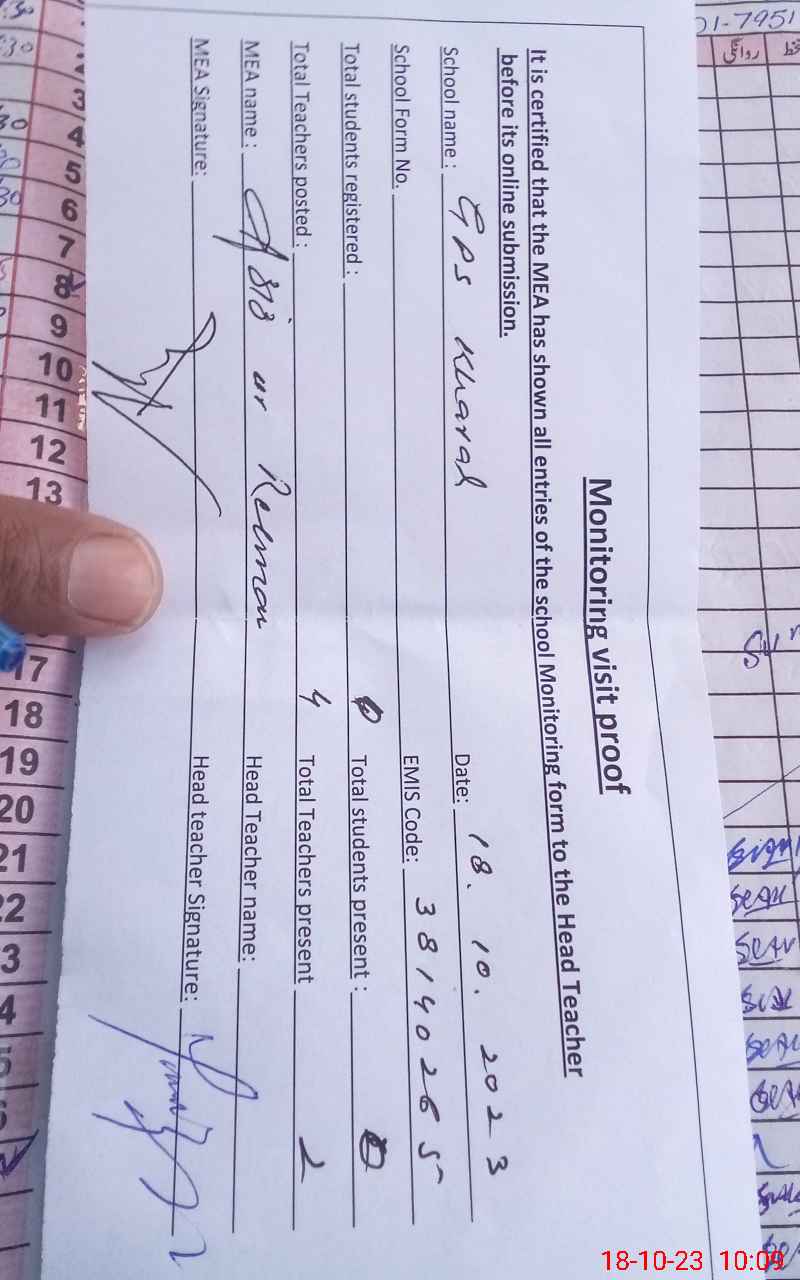 Monitoring visit proof
It is certified that the MEA has shown all entries of the school Monitoring form to the Head Teacher
before its online submission.
School name : GPS Kharal Date: 18. 10. 2023
School Form No. EMIS Code: 38140265
Total students registered : 0 Total students present : 0
Total Teachers posted : 4 Total Teachers present 2
MEA name : ur Rehman Head Teacher name:
MEA Signature: Head teacher Signature:
01-7951
روانگی
3
4
5
6
7
8
9
10
11
12
13
17
18
19
20
21
18-10-23 10:09